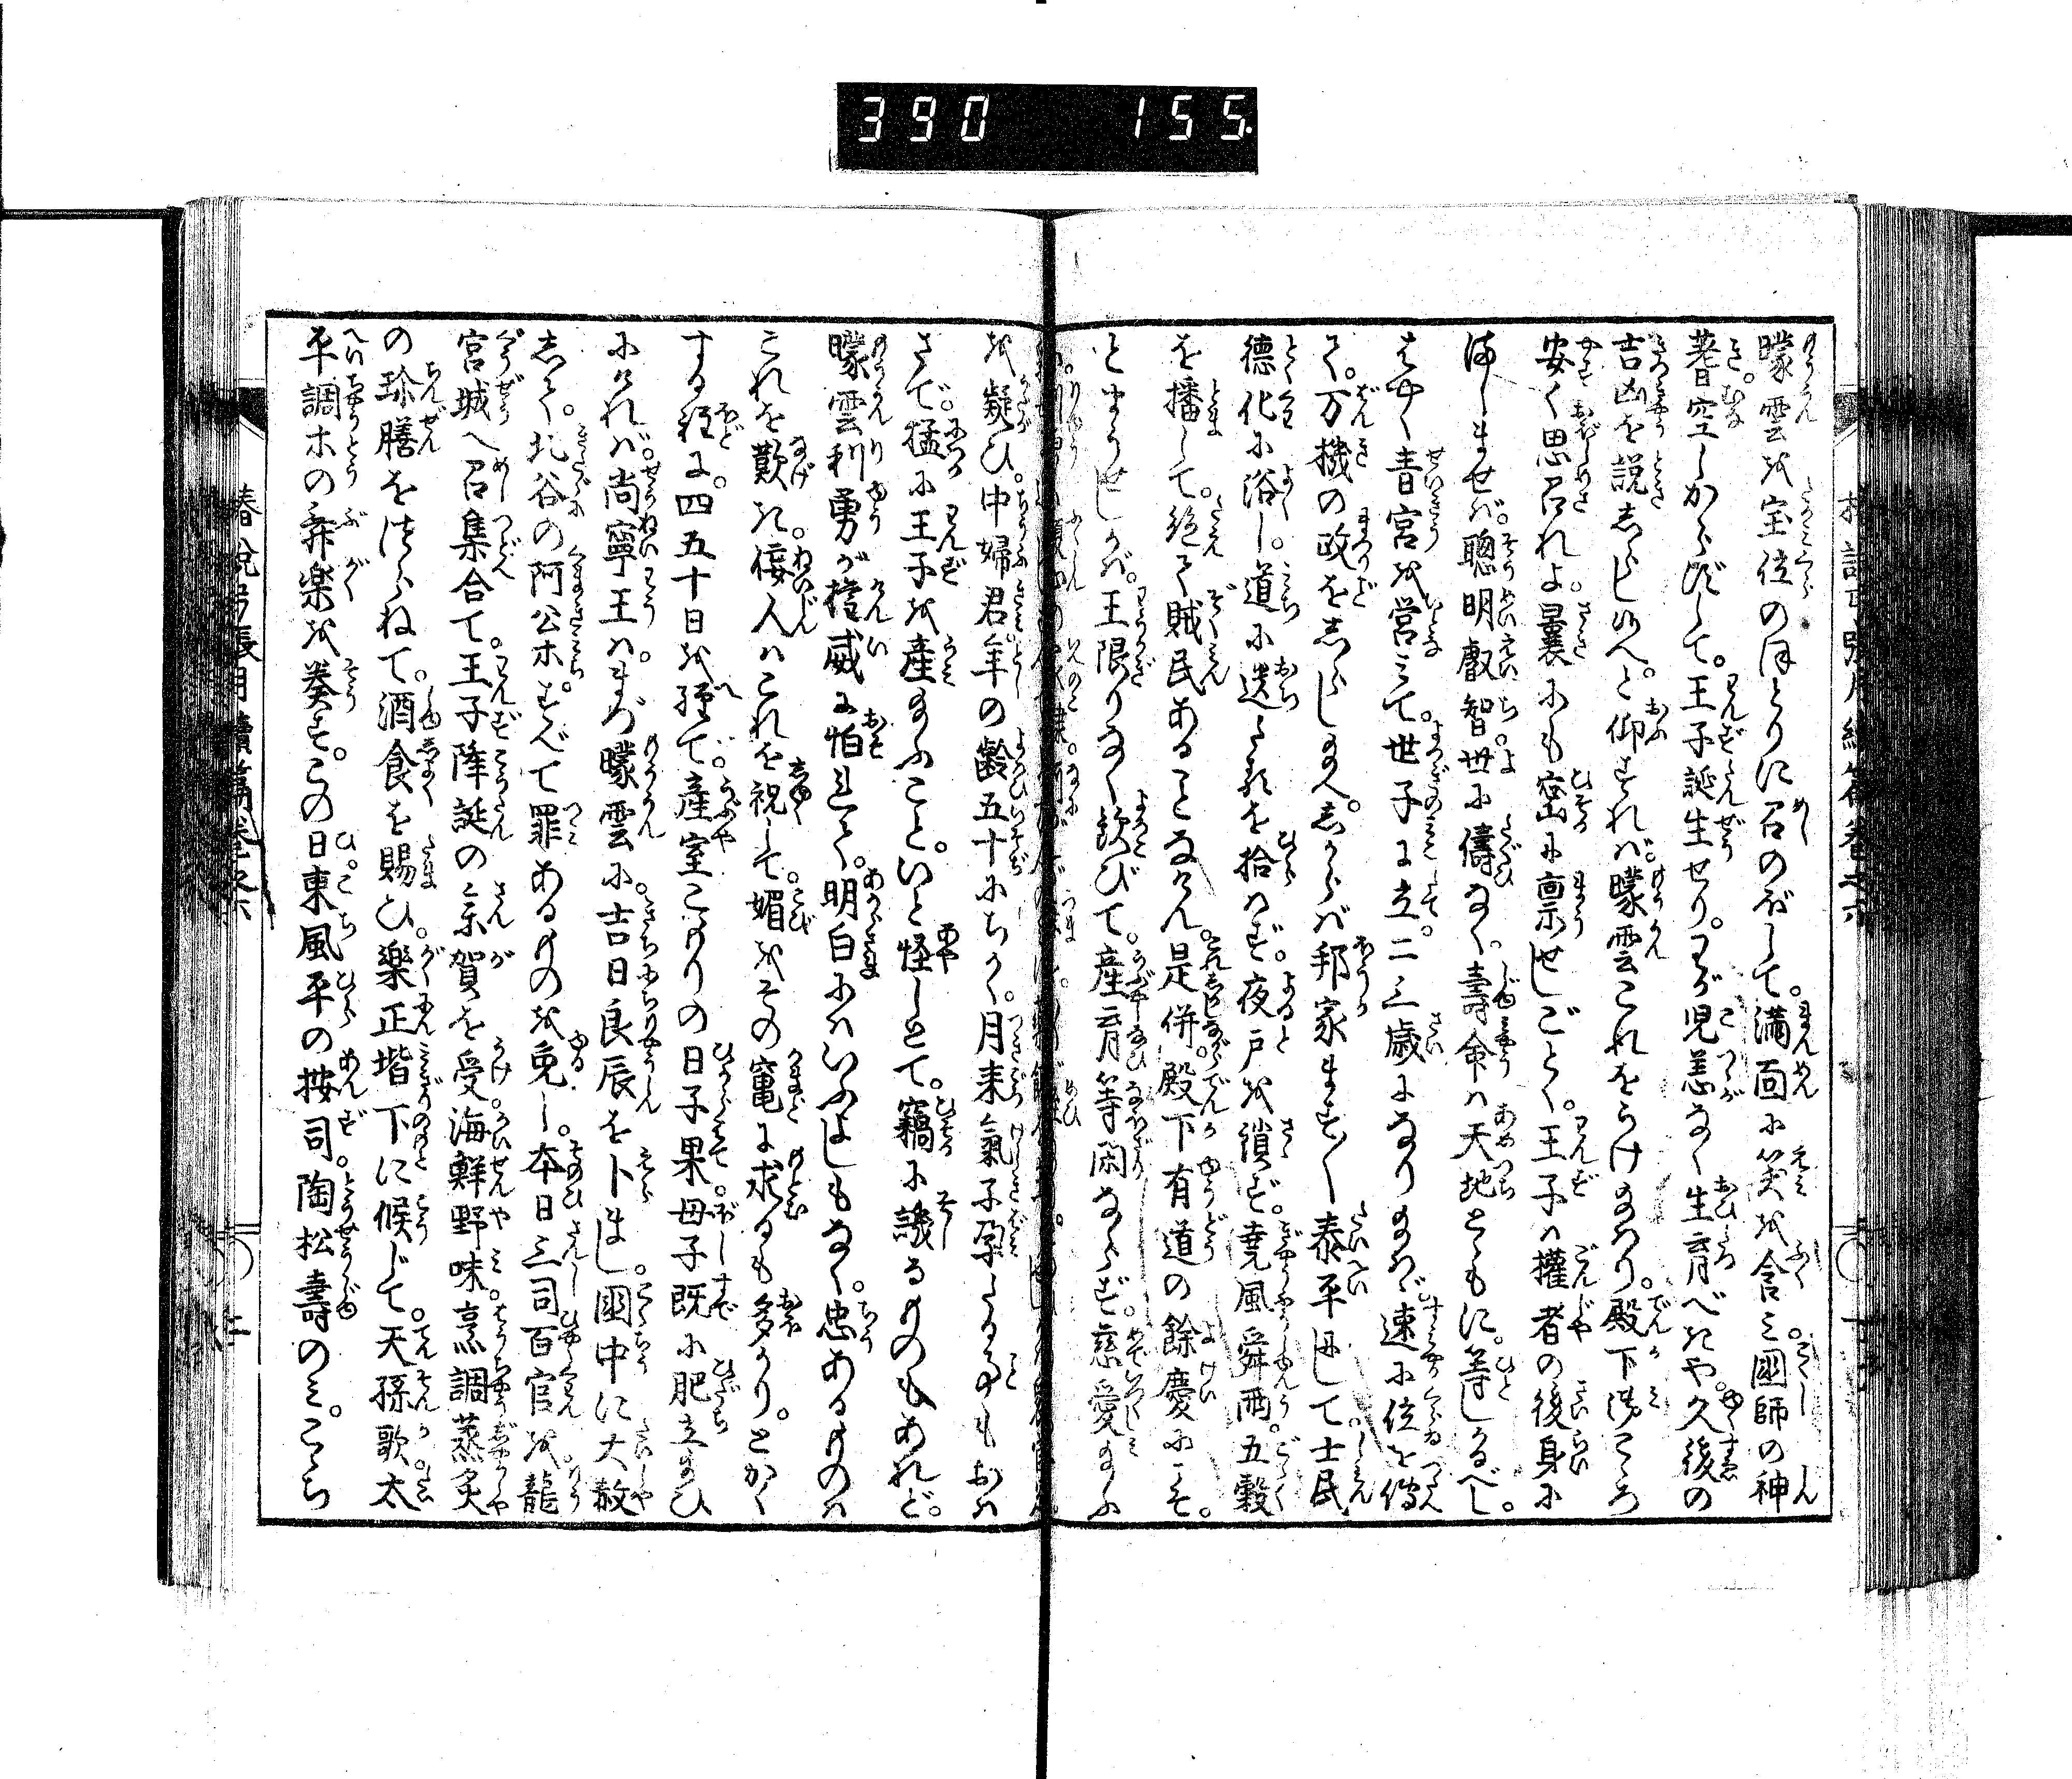 390 155
曚雲を宝位のほとりに召のぼして。満面に笑を含み。國師の神
著空しからずして。王子誕生せり。わが児恙なく生育べきや。久後の
吉凶を説しらし給へ。と仰すれば。曚雲これをうけ給はり。殿下御こゝろ
安く思召れよ。曩にも密に禀せしごとく。王子は權者の後身に
ましませば。聰明叡智世に儔なく。壽命は天地とゝもに。等しかるべし。
はやく青宮を営みて。世子に立。二三歳になり給はゞ。速に位を傳
て。万機の政をしらし給へ。しからば邦家ます〱泰平にして士民
徳化に浴し。道に送たるを拾はず。夜戸を鎖ず。堯風舜雨。五穀
を播して。絶て賊民あることなけん。是併殿下有道の餘慶にこそ。
とまうせしかば。王限りなく歓びて。産育等閑ならず。慈愛給ふ
を疑ひ。中婦君年の齢五十にちかく。月来氣子孕たる事もおは
さで。猛に王子を産給ふこと。いと怪しとて。竊に譏るものもあれど。
曚雲利勇が權威に怕れて。明白にはいふよしもなく。忠あるものは
これを歎き。佞人はこれを祝して。媚をその竃に求るも多かり。とかく
する程に。四五十日を経て。産室こもりの日子果。母子既に肥立給ひ
にければ。尚寧王は。まづ曚雲に。吉日良辰を卜まし。國中に大赦
して。北谷の阿公ホ。すべて罪あるものを免し。本日三司百官を龍
宮城へ召集合て。王子降誕の参賀を受。海鮮野味。烹調蒸炙
の珍膳をつらねて。酒食を賜ひ。樂正堦下に候じて。天孫歌太
平調ホの舞楽を奏す。この日東風平の按司陶松壽のみ。こゝち
椿説弓張月續篇巻之六